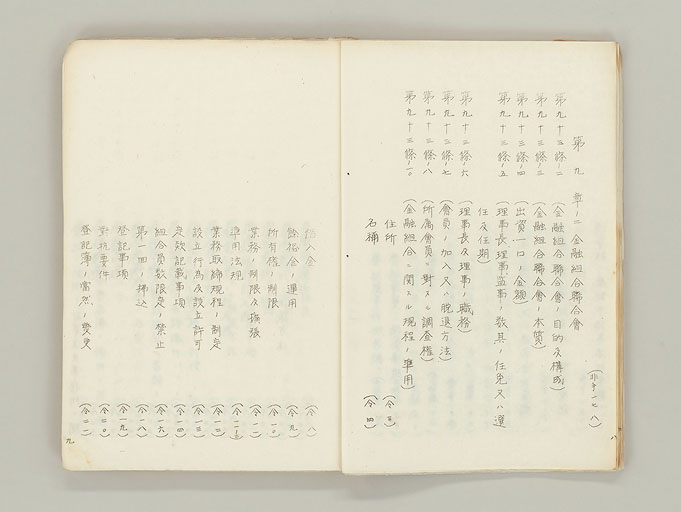 第九章ノ二 金融組合聯合會
(非訟一七八)
第九十三條ノ二 (金融組合聯合會ノ目的及構成)
第九十三條ノ三 (金融組合聯合會ノ本質)
第九十三條ノ四 (出資一口ノ金額)
第九十三條ノ五 (理事長理事監事ノ数其ノ任免又ハ選
任及任期)
第九十三條ノ六 (理事長及理事ノ職務)
第九十三條ノ七 (會員ノ加入又ハ脱退方法)
第九十三條ノ八 (所属會員ニ對スル調査權)
第九十三條ノ一〇 (金融組合ニ関スル規程ノ準用)
住所 (令三)
名稱 (令四)
八
借入金 (令八)
餘裕金ノ運用 (令九)
所有權ノ制限 (令一〇)
業務ノ制限及擴張 (令一一)
準用法規
業務取締規程ノ制定 (令一二)
設立行為及設立許可 (令一三)
定款記載事項 (令一四)
組合員数限定ノ禁止 (令一六)
第一回ノ拂込 (令一八)
登記事項 (令一九)
對抗要件 (令二〇)
登記簿ノ當然ノ變更 (令二二)
九